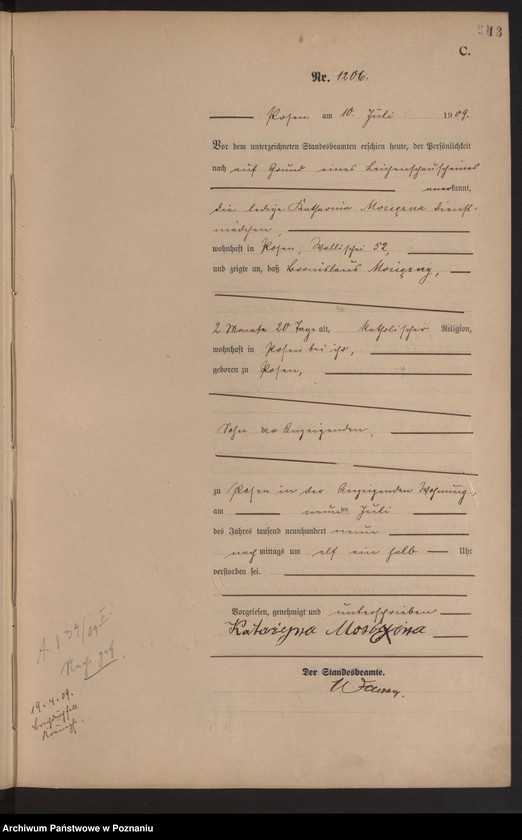 213
C.
Nr. 1206.
Posen am 10. Juli 1909.
Vor dem unterzeichneten Standesbeamten erschien heute, der Persönlichkeit
nach auf Grund eines Leichenschauscheines
anerkannt,
die ledige Katharina Mosiężna Dienst-
mädchen,
wohnhaft in Posen, Wallischei 52,
und zeigte an, daß Bronislaus Mosiężny,
2 Monate 20 Tage alt, katholischer Religion,
wohnhaft in Posen bei ihr,
geboren zu Posen,
Sohn der Anzeigenden,
zu Posen in der Anzeigenden Wohnung
am neunten Juli
des Jahres tausend neunhundert neun
nachmittags um elf ein halb Uhr
verstorben sei.
Vorgelesen, genehmigt und unterschrieben
Katarzyna Mosiężna
Der Standesbeamte.
19.4.09.
Archiwum Państwowe w Poznaniu